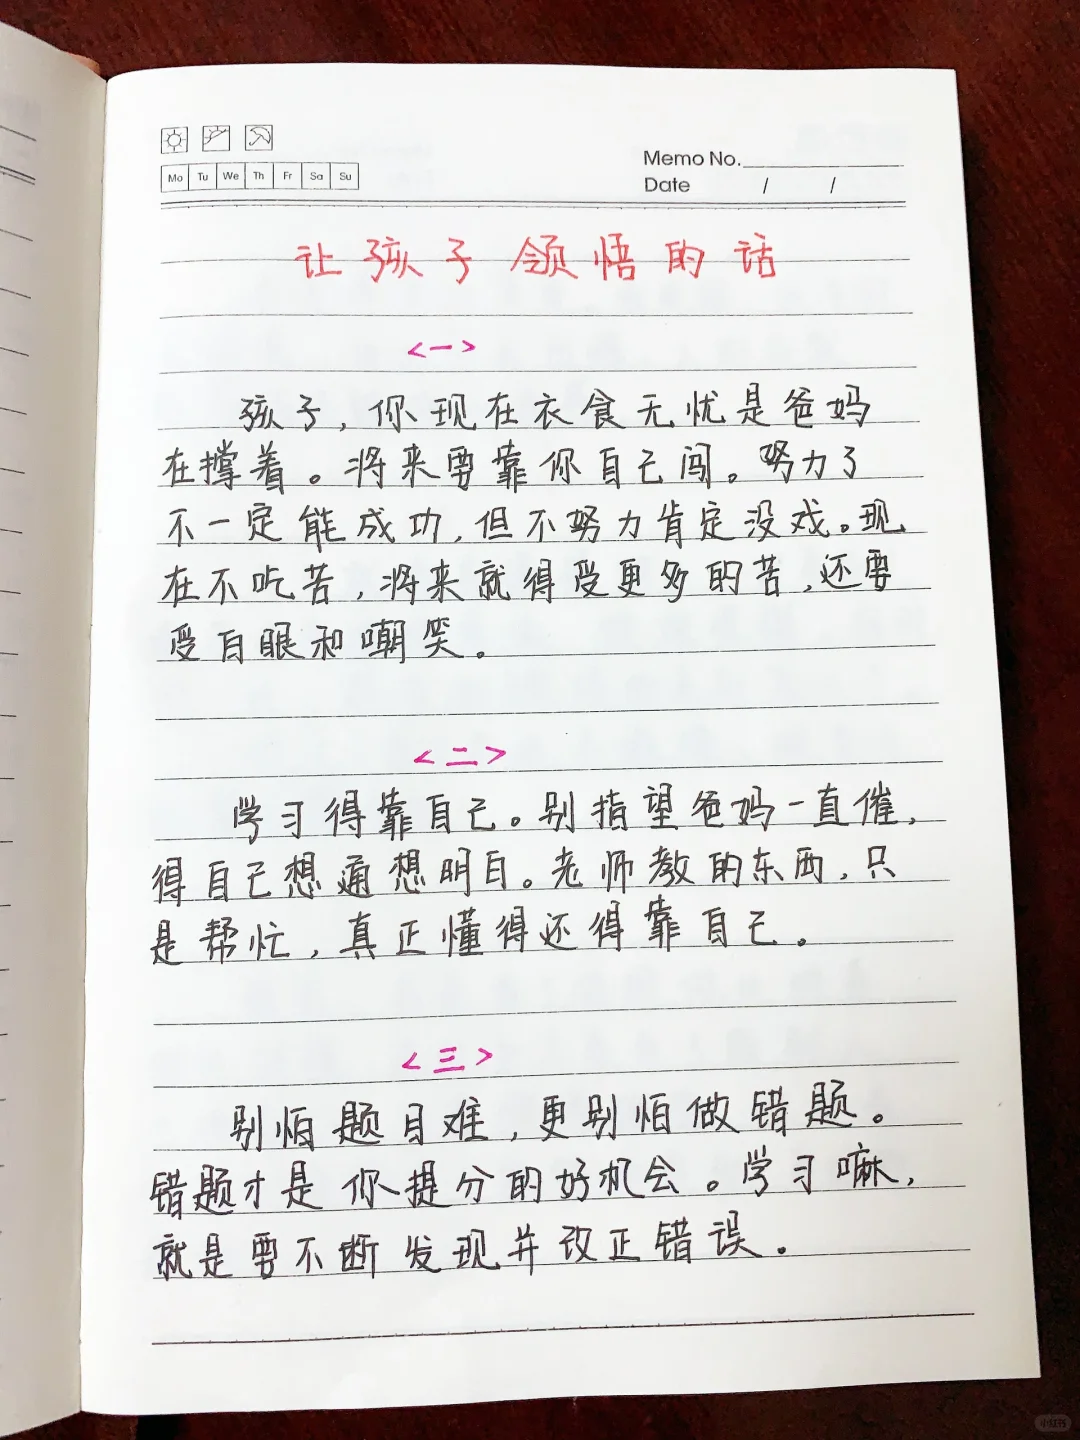 Mo Tu We Th Fr Sa Su
Memo No.
Date / /
让孩子领悟的话
<一>
孩子，你现在衣食无忧是爸妈
在撑着。将来要靠你自己闯。努力了
不一定能成功，但不努力肯定没戏。现
在不吃苦，将来就得受更多的苦，还要
受白眼和嘲笑。
<二>
学习得靠自己。别指望爸妈一直催，
得自己想通想明白。老师教的东西，只
是帮忙，真正懂得还得靠自己。
<三>
别怕题目难，更别怕做错题。
错题才是你提分的好机会。学习嘛，
就是要不断发现并改正错误。
小红书